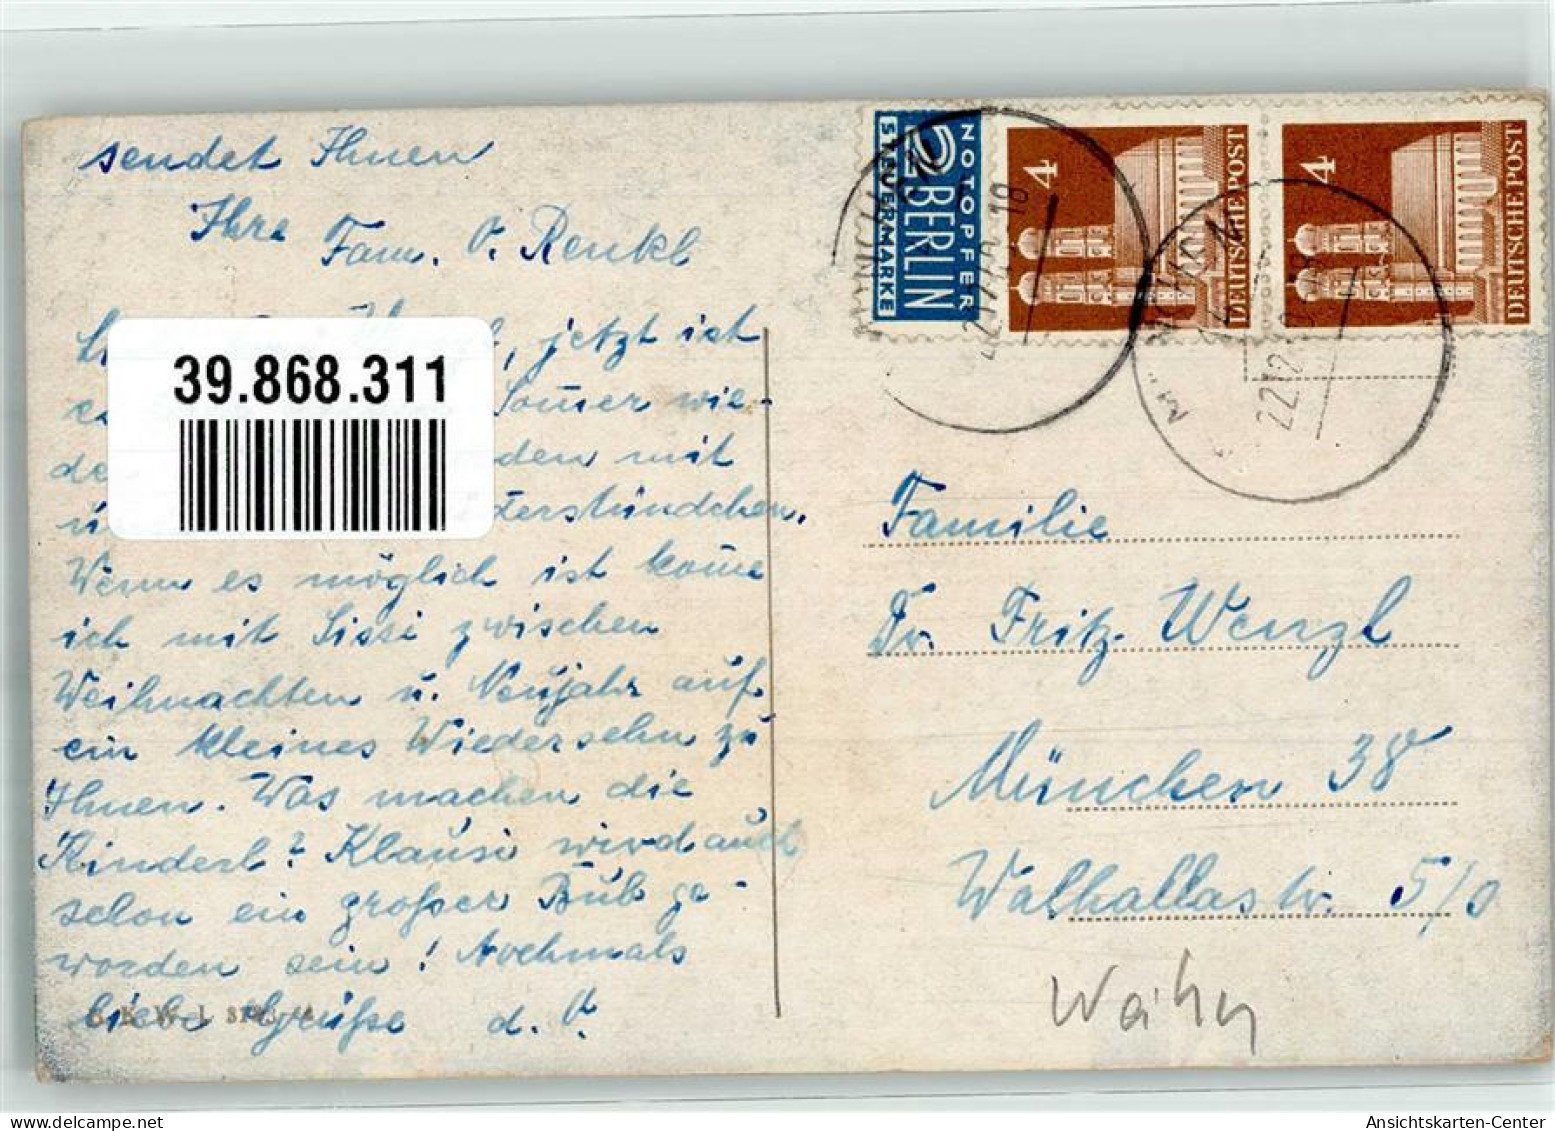 sendet Ihnen
Ihre Fam. O. Renkl
jetzt ist
Som̅er wie-
den mit
Wenn es möglich ist kom̅e
ich mit Sissi zwischen
Weihnachten u. Neujahr auf
ein kleines Wiedersehn zu
Ihnen. Was machen die
Kinderl? Klausi wird auch
schon ein großer Bub ge-
worden sein! Nochmals
liebe Grüße d. O.
39.868.311
NOTOPFER
2 BERLIN
STEUERMARKE
4
DEUTSCHE POST
4
DEUTSCHE POST
MÜNCHEN
Familie
Dr. Fritz Wenzl
München 38
Walhallastr. 5/0
Ansichtskarten-Center